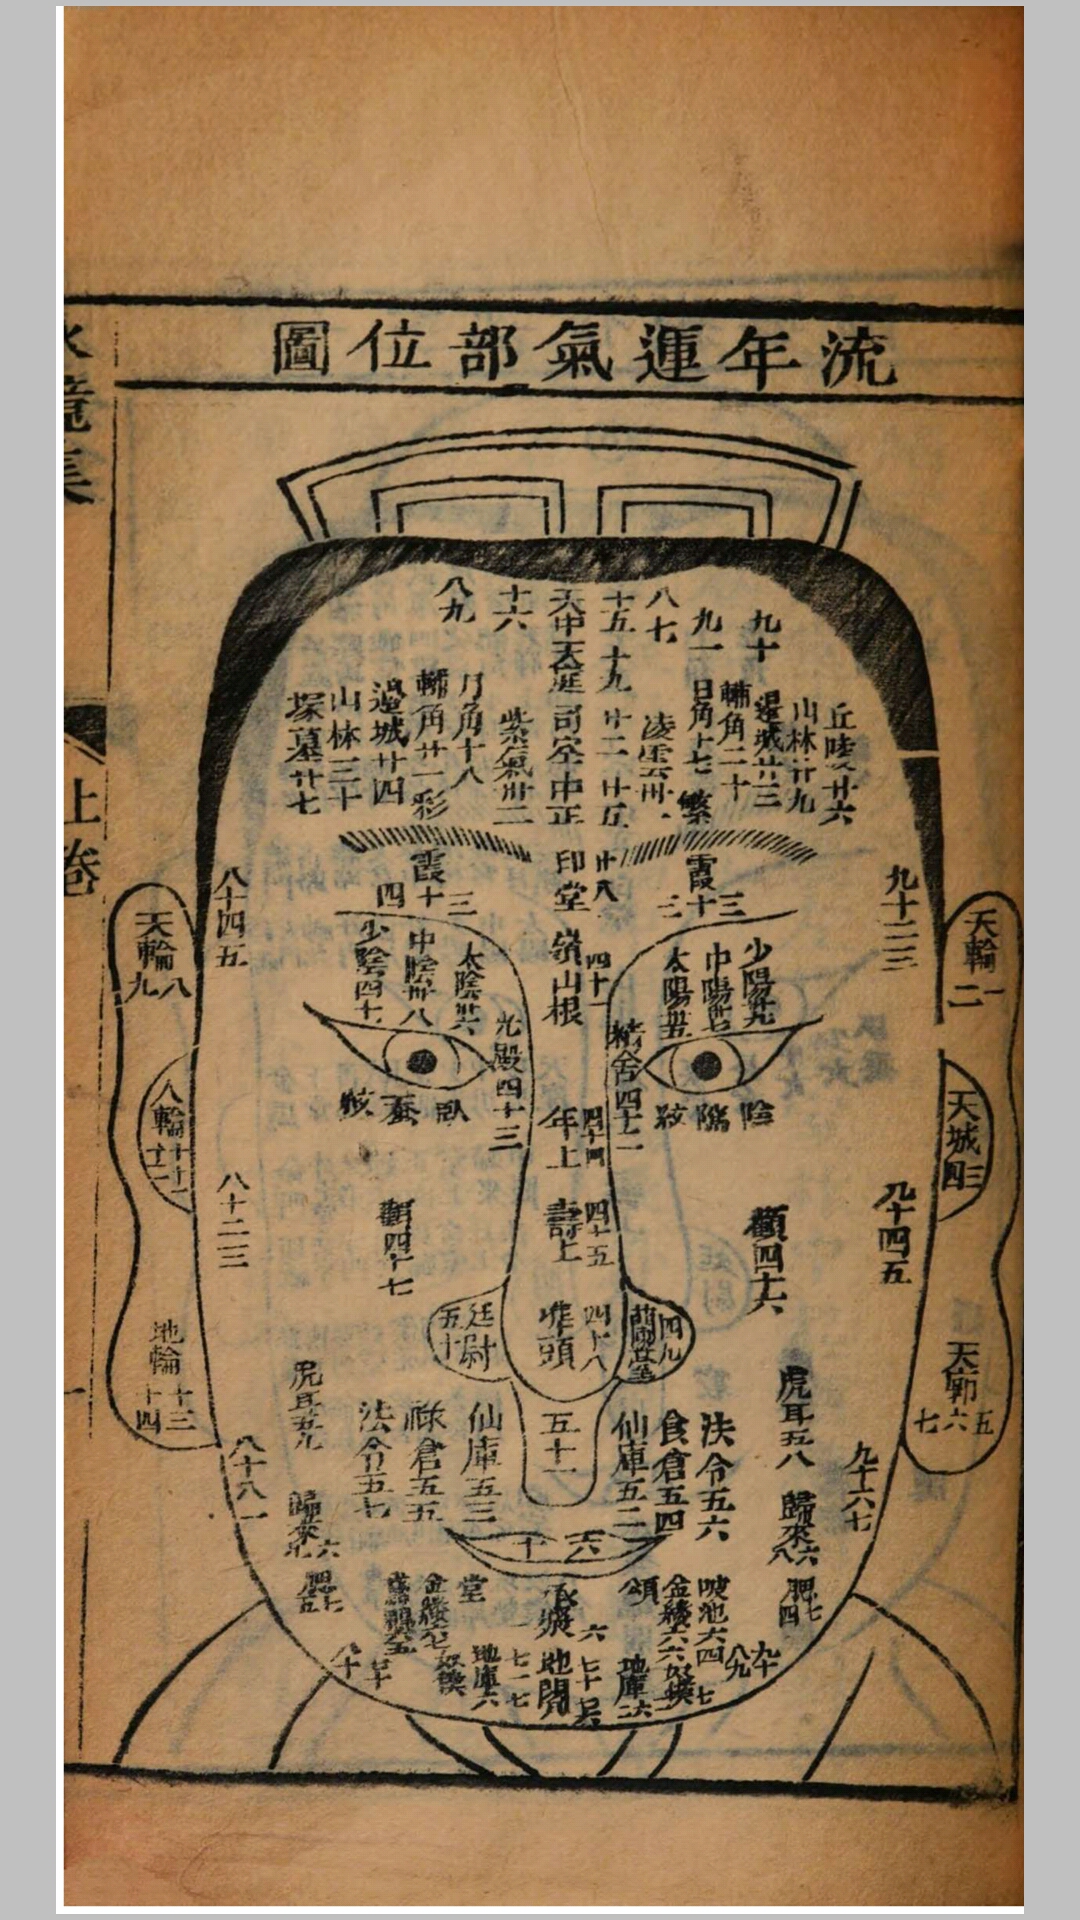 流年運氣部位圖
鏡集
上卷
一
九十
九一
八七
十五
十九
廿二
廿五
天中天庭司空中正
十六
八九
丘陵廿六
山林廿九
邊城廿三
輔角二十
日角十七
凌雲卅一
紫氣卅二
月角十八
輔角廿一
邊城廿四
山林三十
塚墓廿七
繁霞三十三
彩霞三十四
印堂
廿八
山根
四十一
少陽卅九
中陽卅七
太陽卅五
太陰卅六
中陰卅八
少陰四十
精舍四十二
光殿四十三
陰隲紋
臥蚕紋
年上
四十四
壽上
四十五
準頭
四十八
顴四十六
顴四十七
四九
廷尉
五十
五十一
虎耳五八
法令五六
食倉五四
仙庫五二
仙庫五三
祿倉五五
法令五七
虎耳五九
六十
歸來六八
歸來六七
腮七四
腮七五
頌堂
地閣
地庫
地庫
金縷六六
天輪一二
天城三四
天廓五六七
天輪八九
人輪十十一十二
地輪十三十四
九十二三
九十四五
九十六七
八十四五
八十二三
八十八一